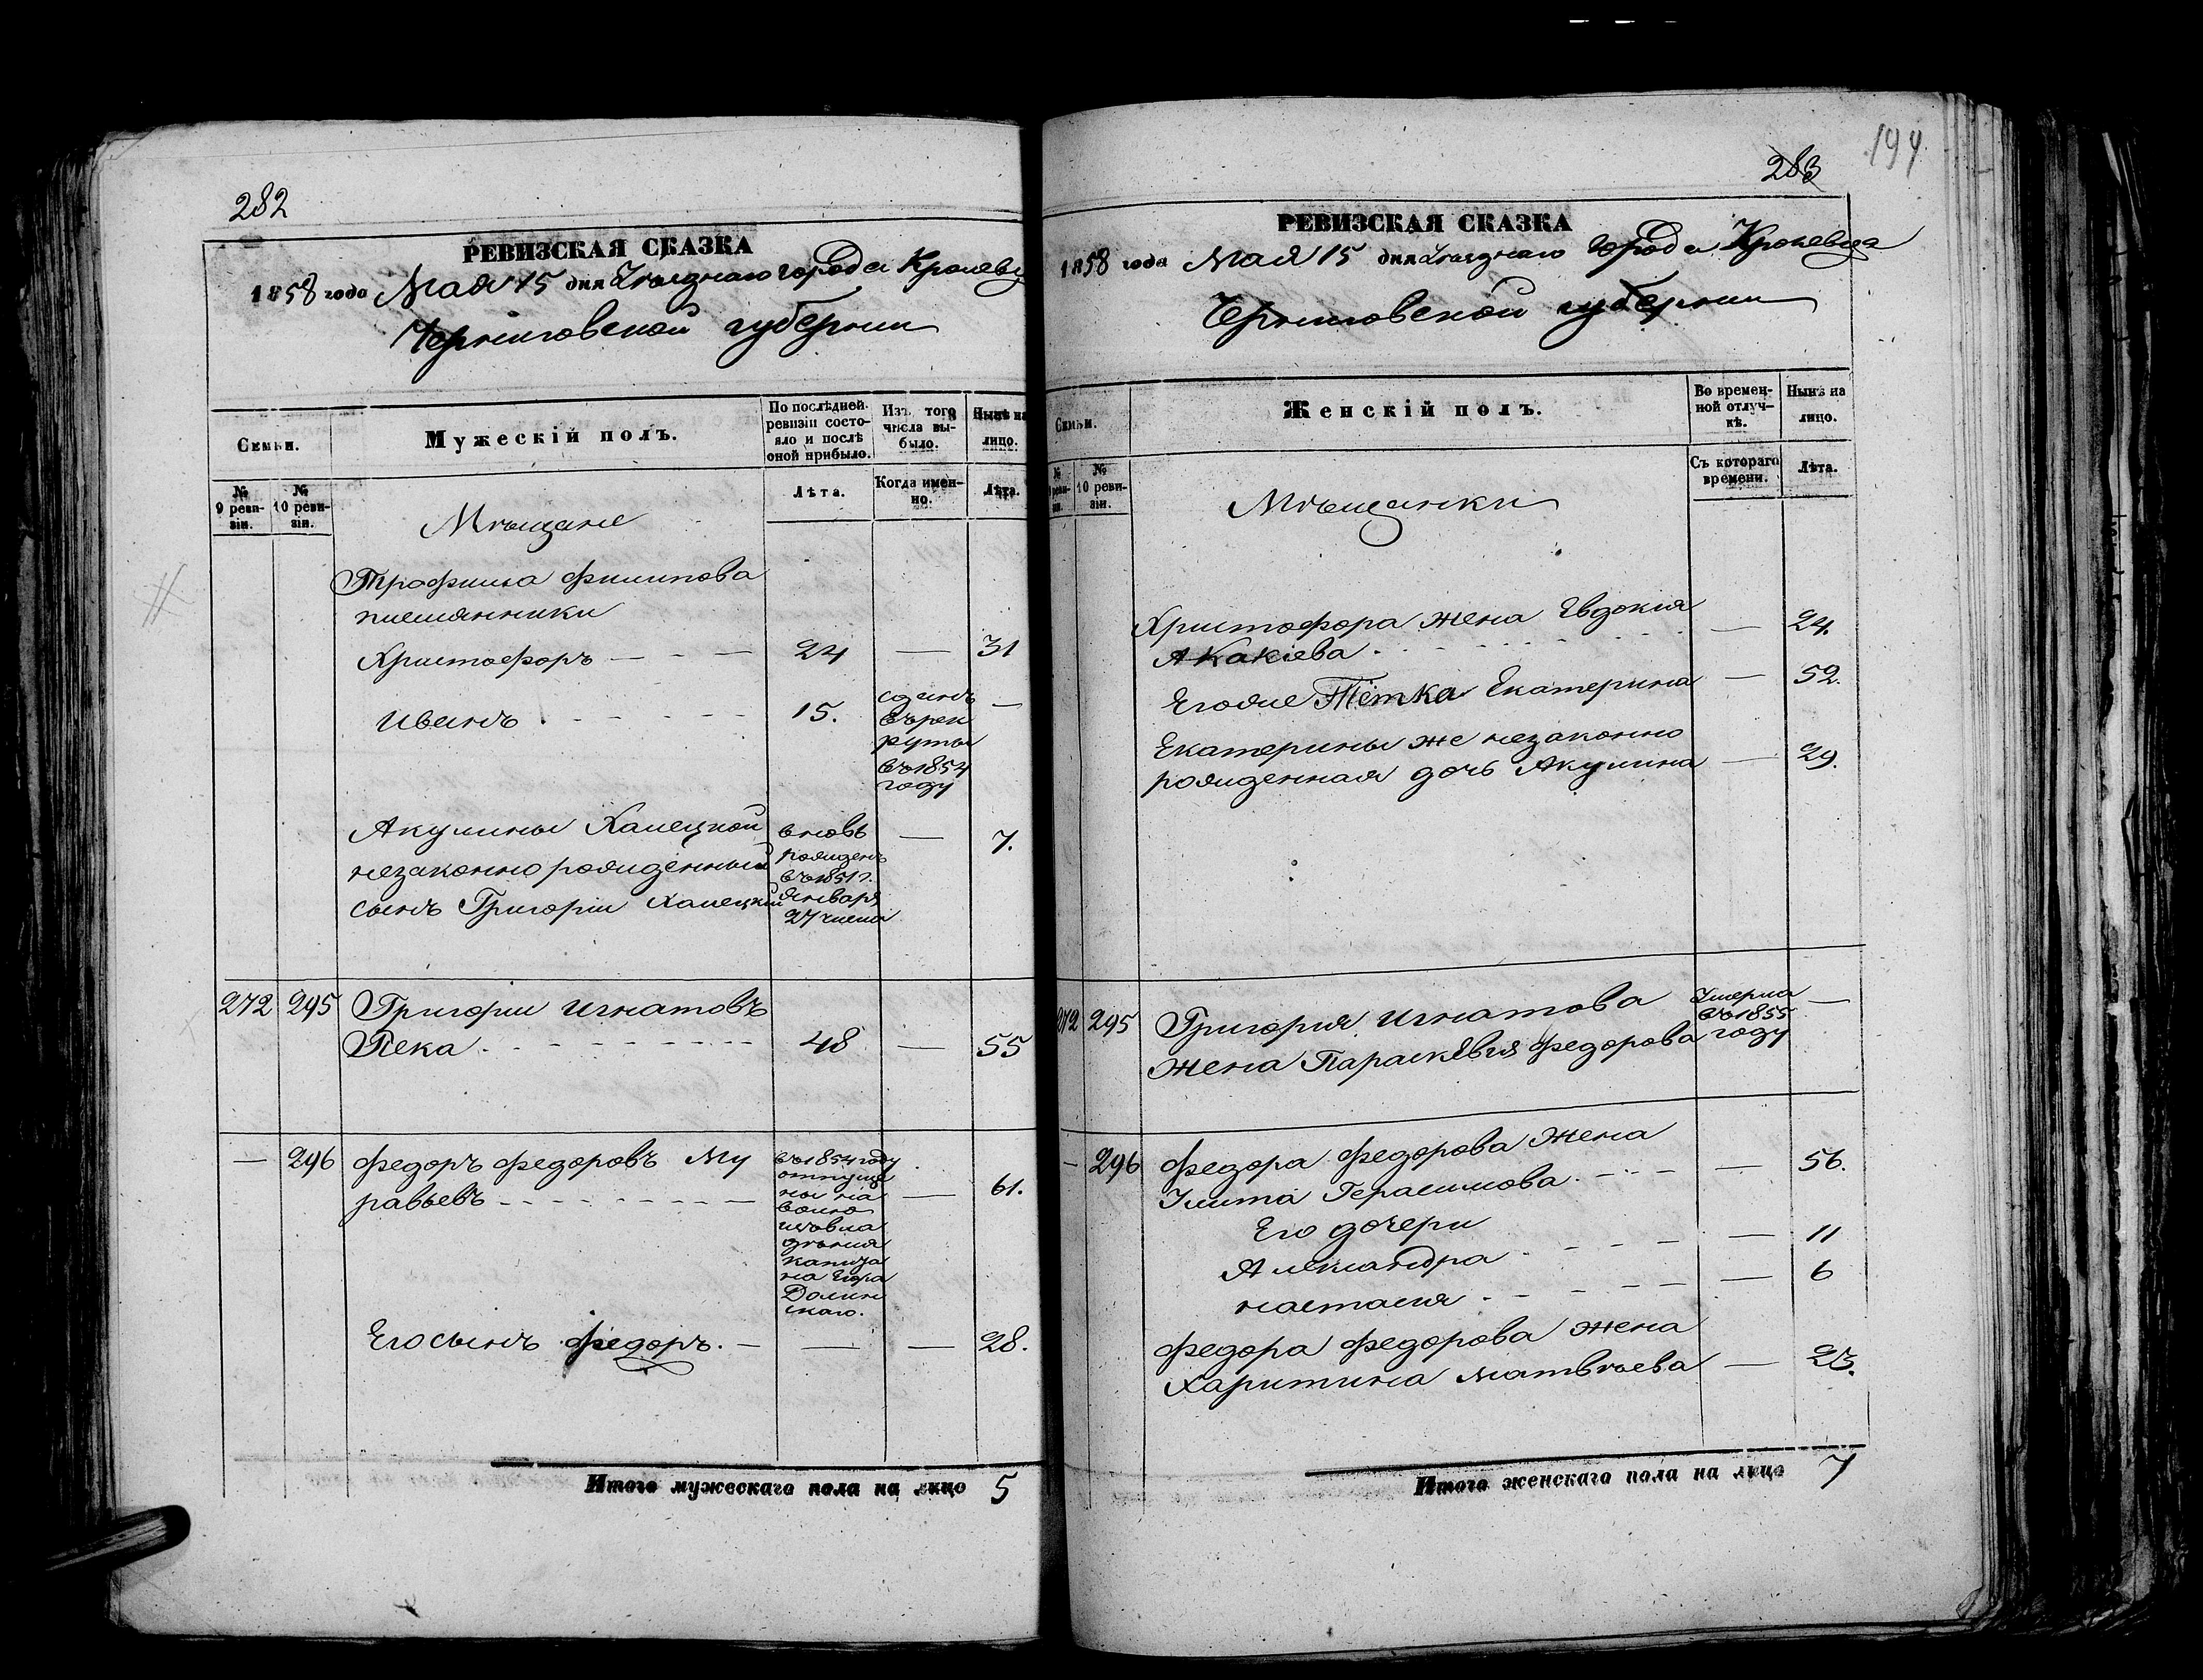 282
РЕВИЗСКАЯ СКАЗКА
1858 года Мая 15 дня Уѣзднаго города Кролевц
Черниговской губернии
Семьи.
Мужескій полъ.
По послѣдней ревизіи состо-
яло и послѣ
оной прибыло.
Изъ того
числа вы-
было.
Нынѣ на
лицо.
№
9 реви-
зіи.
№
10 реви-
зіи.
Лѣта.
Когда имен-
но.
Лѣта.
Мѣщане
Трофима Филипова
племянники
Христофоръ — 24 — 31
Иванъ 15. —
сданъ
въ рек
руты
въ 1854
году
Акулины Халецкой
незаконно рожденный
сынъ Григорій Халецкій
вновь
рожденъ
въ 1851 г.
Января
27 числа
— 7.
272 295 Григорий Игнатовъ
Река 48 — 55
— 296 Федоръ Федоровъ Му
равьевъ — 61.
въ 1854 году
отпуще
ны на
волю
изъ вла
дѣнія
капита
на
Долин
скаго.
Его сынъ Федоръ. — — — 28.
Итого мужескаго пола на лицо 5
194
283
РЕВИЗСКАЯ СКАЗКА
1858 года Мая 15 дня Уѣзднаго города Кролевца
Черниговской губернии
Семьи.
Женскій полъ.
Во времен-
ной отлуч-
кѣ.
Нынѣ на
лицо.
№
9 реви-
зіи.
№
10 реви-
зіи.
Съ котораго
времени.
Лѣта.
Мѣщанки
Христофора жена Евдокия
Акакіева — 24.
Его же Тётка Екатерина — 52.
Екатерины же незаконно
рожденная дочь Акулина — 29.
272 295 Григория Игнатова
жена Параскевия Федорова
Умерла
въ 1855
году
—
— 296 Федора Федорова жена
Улита Герасимова — 56.
Его дочери
Александра — 11
Настасия — 6
Федора Федорова жена
Харитина Матвѣева — 23.
Итого женскаго пола на лицо 7